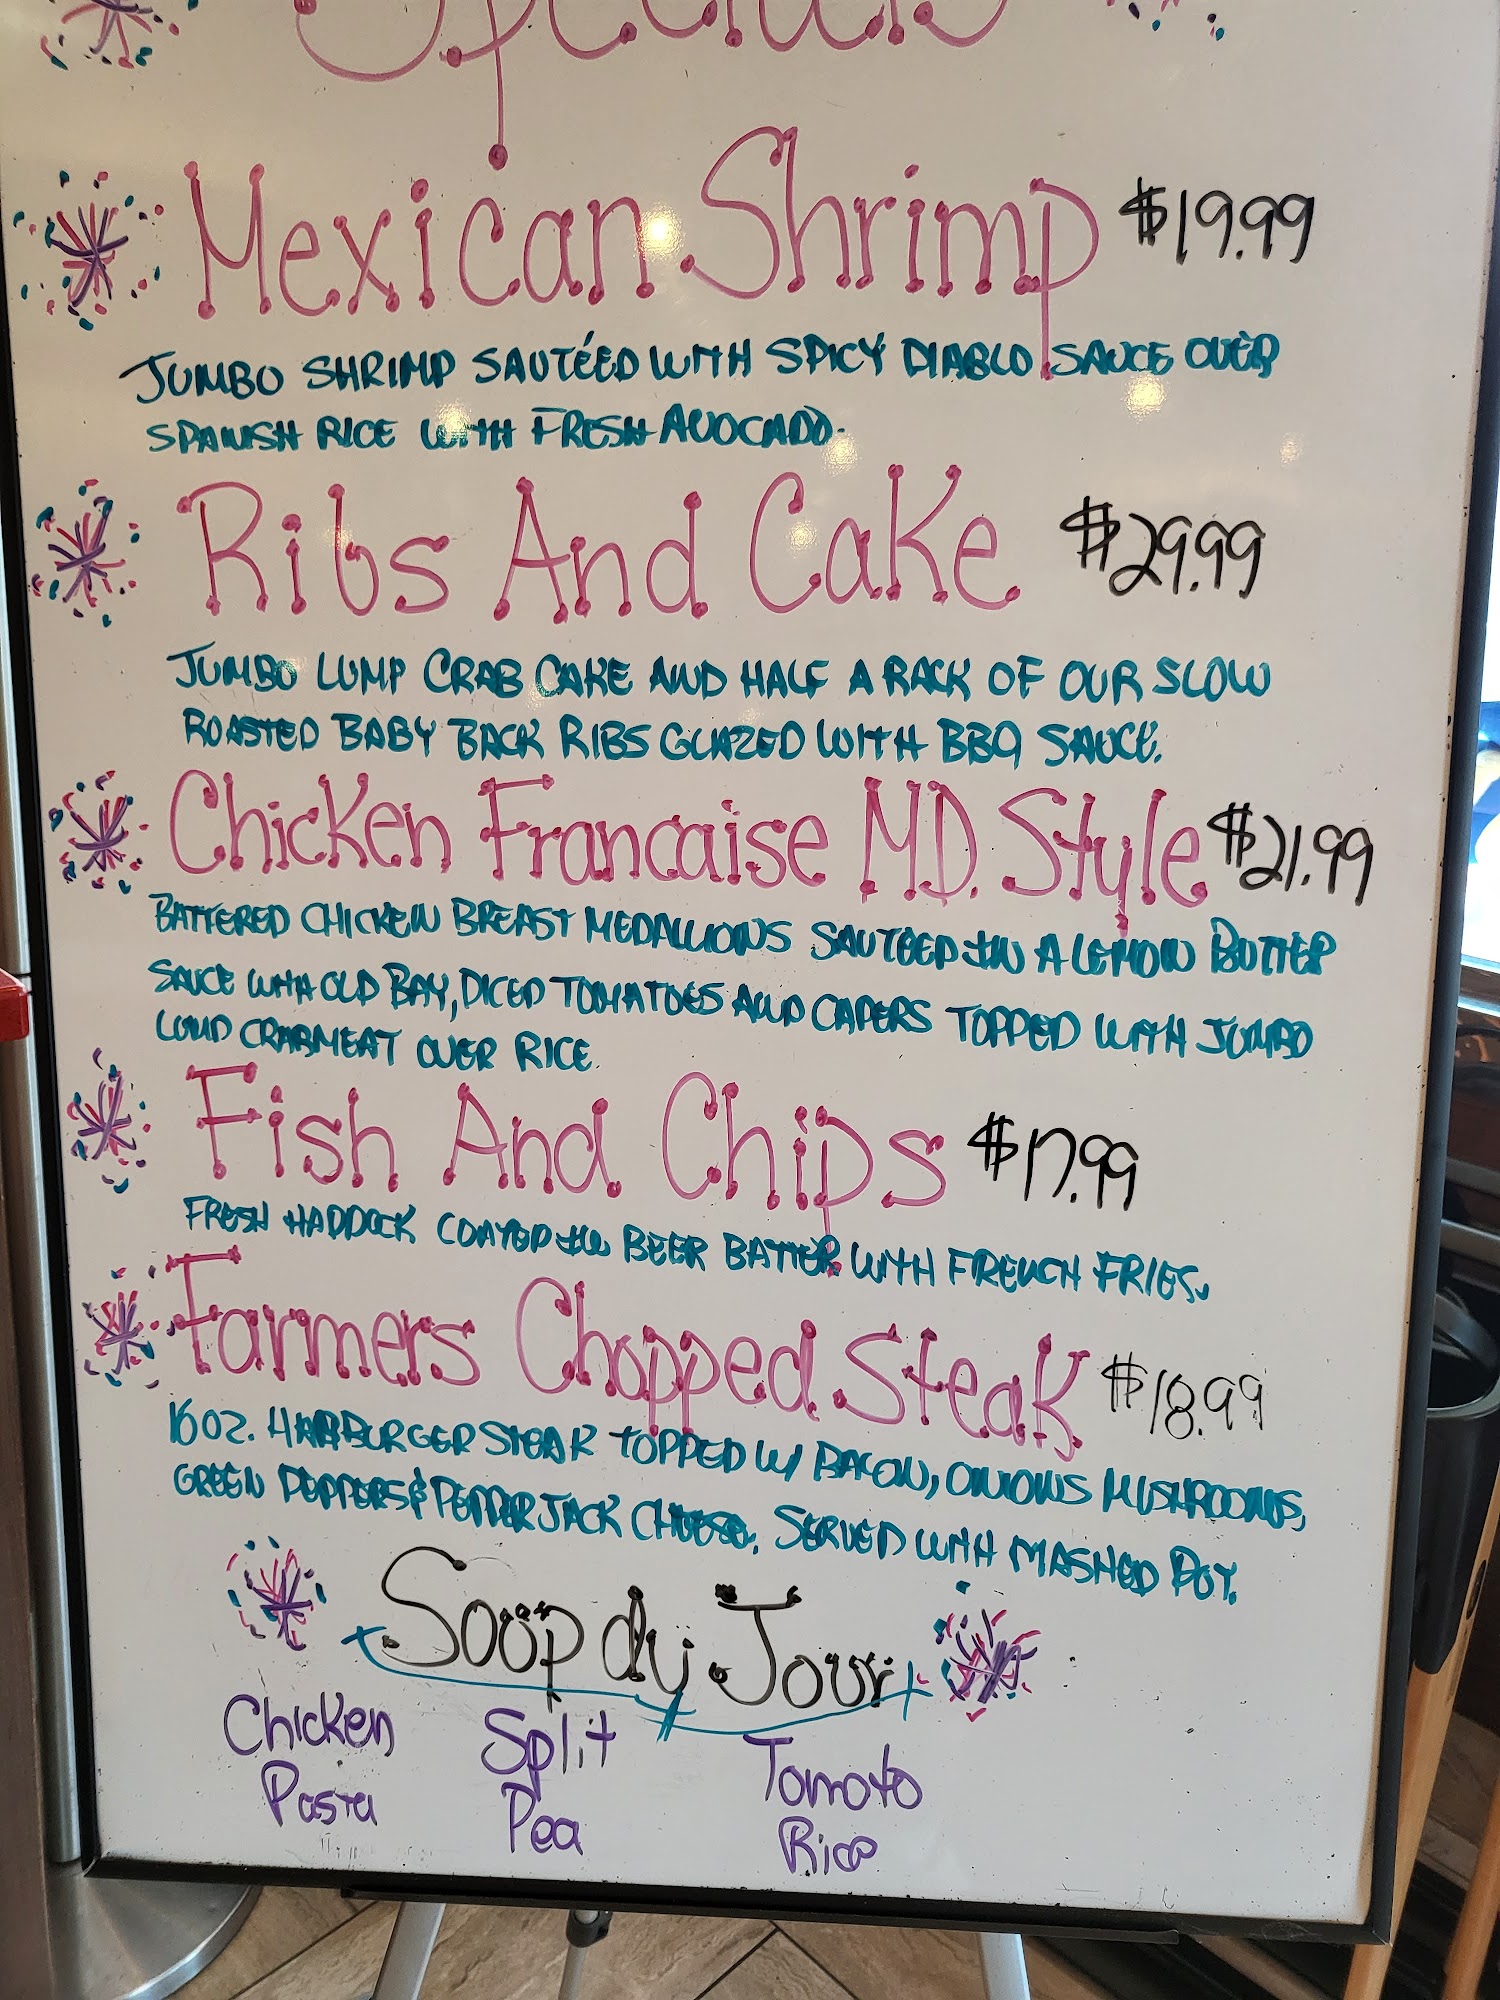 Specials
Mexican Shrimp $19.99
JUMBO SHRIMP SAUTÉED WITH SPICY DIABLO SAUCE OVER
SPANISH RICE WITH FRESH AVOCADO.
Ribs And Cake $29.99
JUMBO LUMP CRAB CAKE AND HALF A RACK OF OUR SLOW
ROASTED BABY BACK RIBS GLAZED WITH BBQ SAUCE.
Chicken Francaise MD. Style $21.99
BATTERED CHICKEN BREAST MEDALLIONS SAUTEED IN A LEMON BUTTER
SAUCE WITH OLD BAY, DICED TOMATOES AND CAPERS TOPPED WITH JUMBO
LUMP CRABMEAT OVER RICE.
Fish And Chips $17.99
FRESH HADDOCK COATED IN BEER BATTER WITH FRENCH FRIES.
Farmers Chopped Steak $18.99
16 OZ. HAMBURGER STEAK TOPPED W/ BACON, ONIONS MUSHROOMS,
GREEN PEPPERS & PEPPER JACK CHEESE. SERVED WITH MASHED POT.
Soup du Jour
Chicken Pasta
Split Pea
Tomato Rice